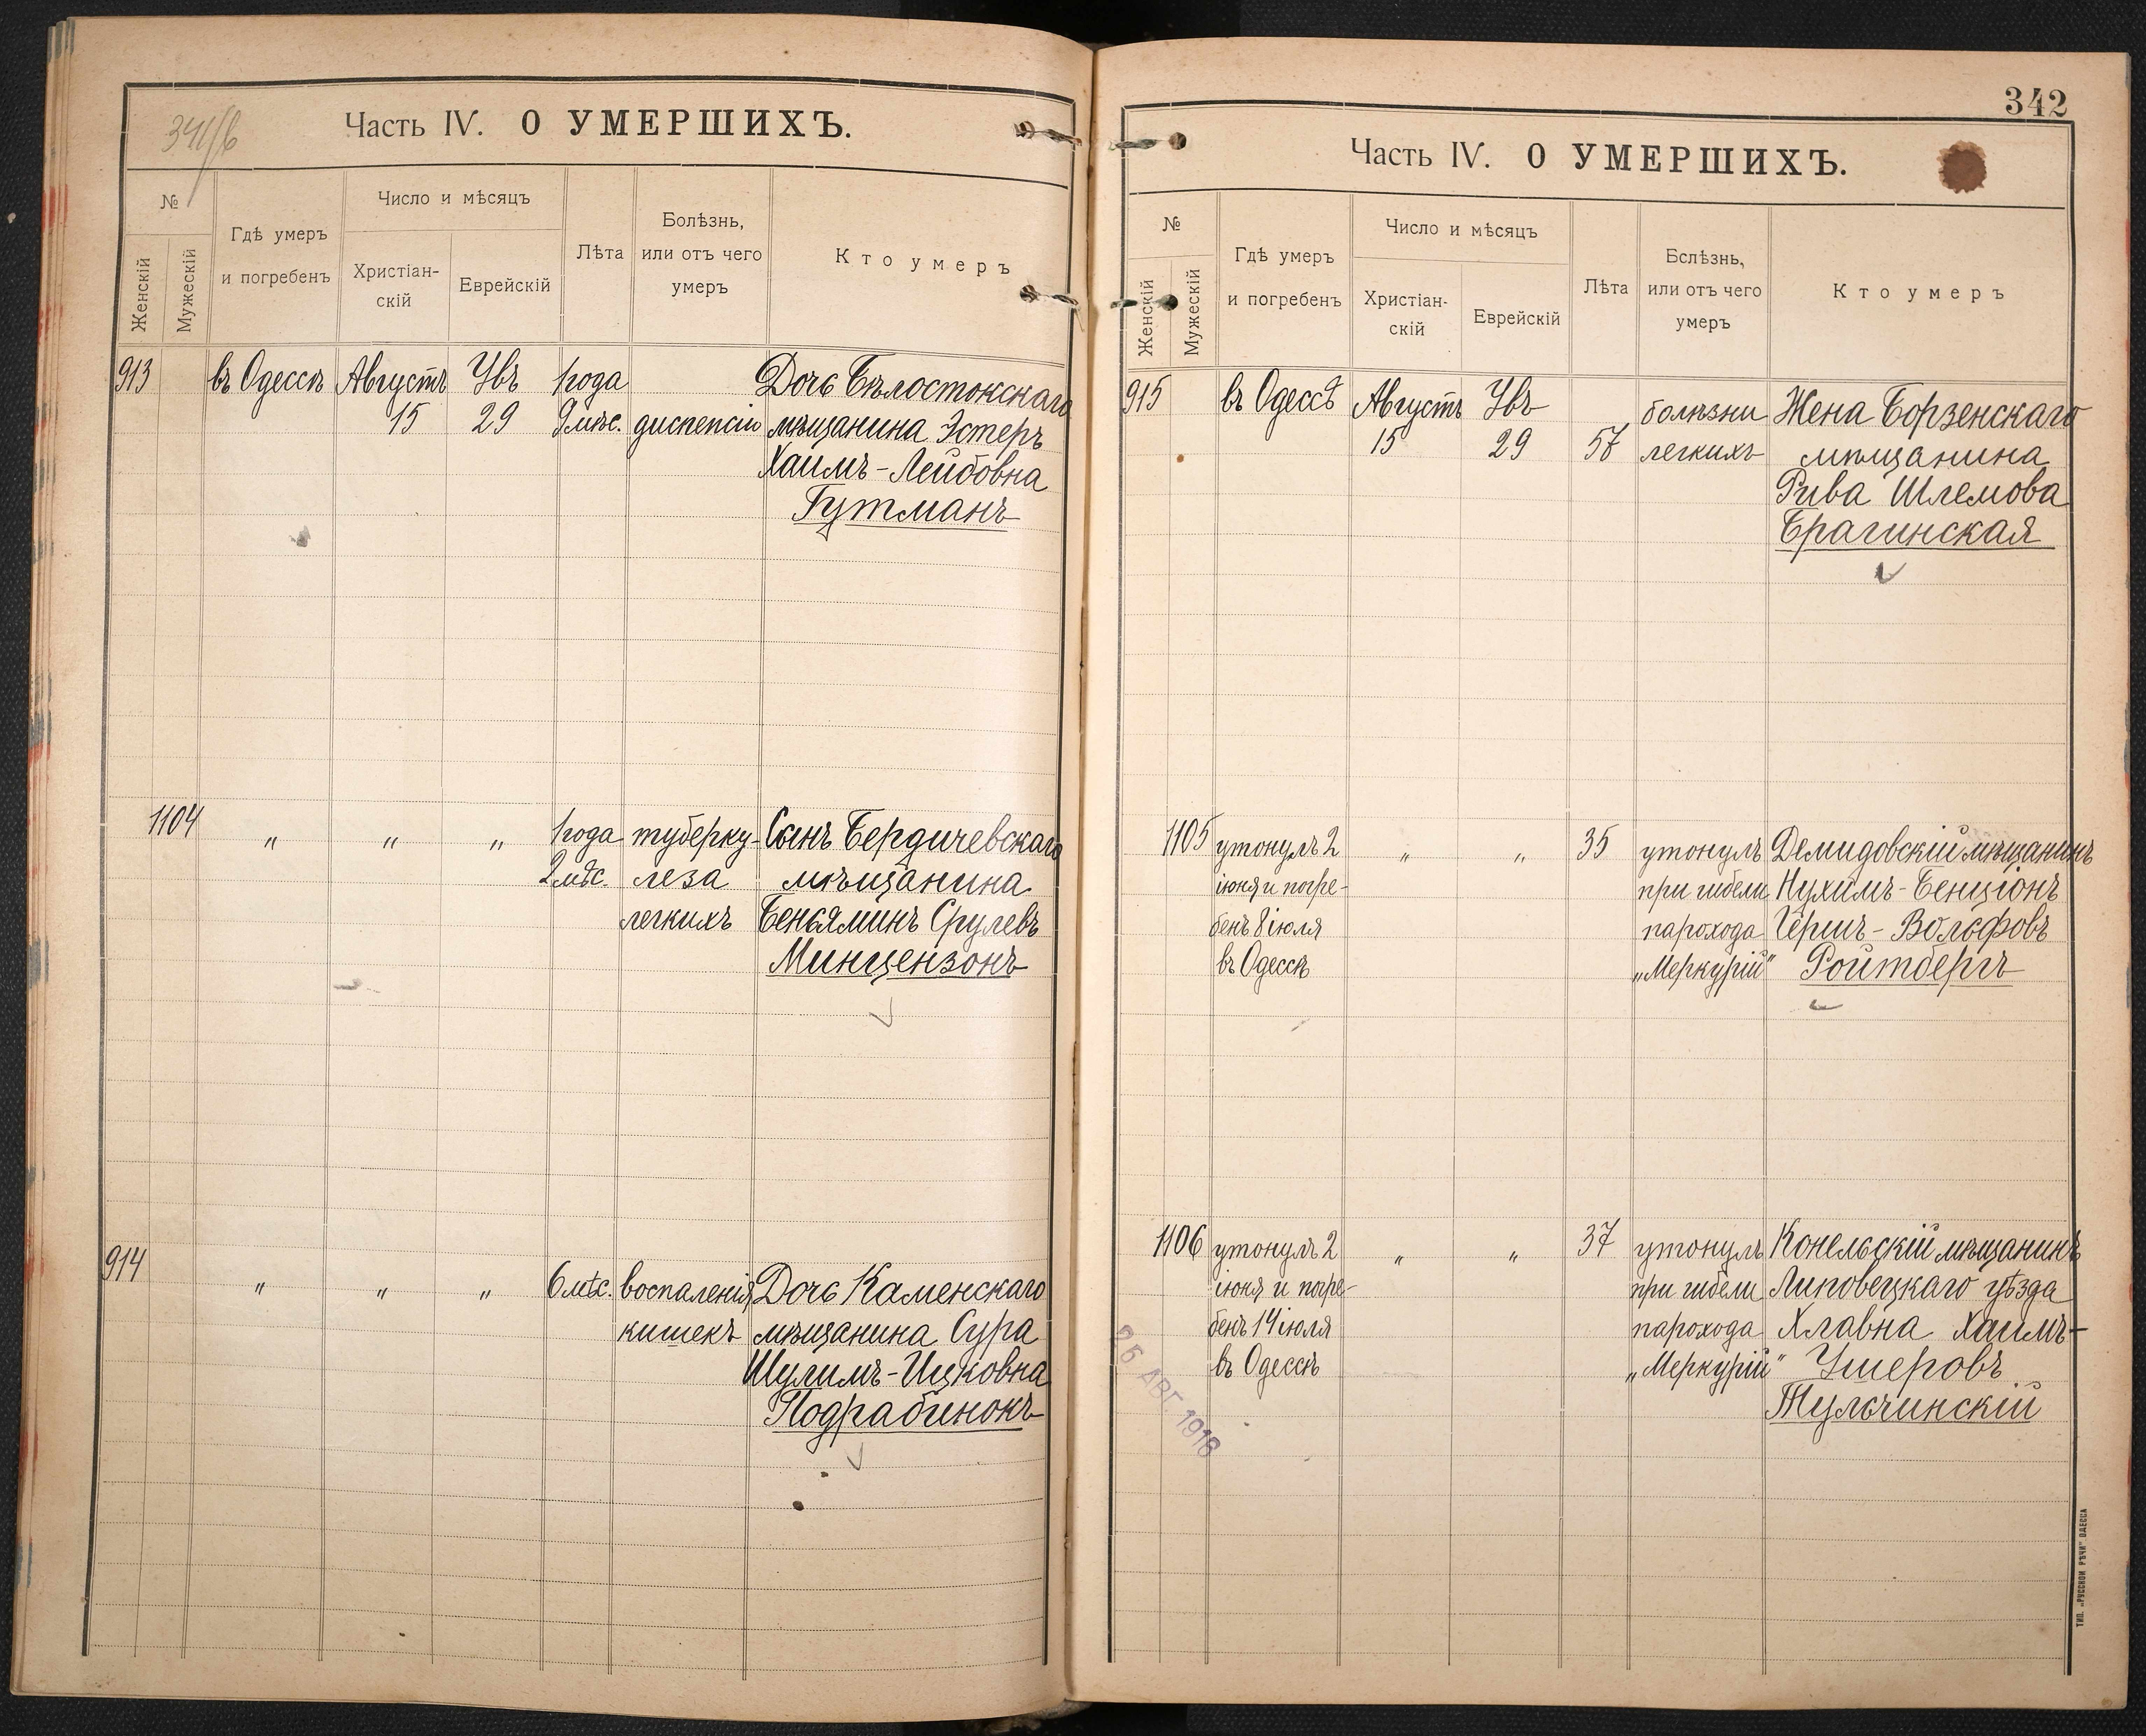 341/б
Часть IV. О УМЕРШИХЪ.
№
Женскій
Мужескій
Гдѣ умеръ
и погребенъ
Число и мѣсяцъ
Христіан-
скій
Еврейскій
Лѣта
Болѣзнь,
или отъ чего
умеръ
Кто умеръ
913
въ Одессѣ
Августъ
15
Увъ
29
1 года
9 мѣс.
диспепсіи
Дочь Бѣлостокскаго
мѣщанина Эстеръ
Хаимъ-Лейбовна
Гутманъ
1104
„
„
„
1 года
2 мѣс.
туберку-
леза
легкихъ
Сынъ Бердичевскаго
мѣщанина
Беньяминъ Срулевъ
Минцензонъ
914
„
„
„
6 мѣс.
воспаленія
кишекъ
Дочь Каменскаго
мѣщанина Сура
Шулимъ-Ицковна
Подрабинокъ
342
Часть IV. О УМЕРШИХЪ.
№
Женскій
Мужескій
Гдѣ умеръ
и погребенъ
Число и мѣсяцъ
Христіан-
скій
Еврейскій
Лѣта
Бслѣзнь,
или отъ чего
умеръ
Кто умеръ
915
въ Одессѣ
Августъ
15
Увъ
29
57
болѣзни
легкихъ
Жена Борзенскаго
мѣщанина
Рива Шлемова
Брагинская
1105
утонулъ 2
іюня и погре-
бенъ 8 іюля
въ Одессѣ
„
„
35
утонулъ
при гибели
парохода
„Меркурій"
Демидовскій мѣщанинъ
Нухимъ-Бенціонъ
Гершъ-Вольфовъ
Ройтбергъ
1106
утонулъ 2
іюня и погре-
бенъ 14 іюля
въ Одессѣ
„
„
37
утонулъ
при гибели
парохода
„Меркурій"
Конельскій мѣщанинъ
Липовецкаго уѣзда
Хлавна Хаимъ-
Ушеровъ
Тульчинскій
26 АВГ 1918
ТИП. „РУССКОЙ РѢЧИ" ОДЕССА